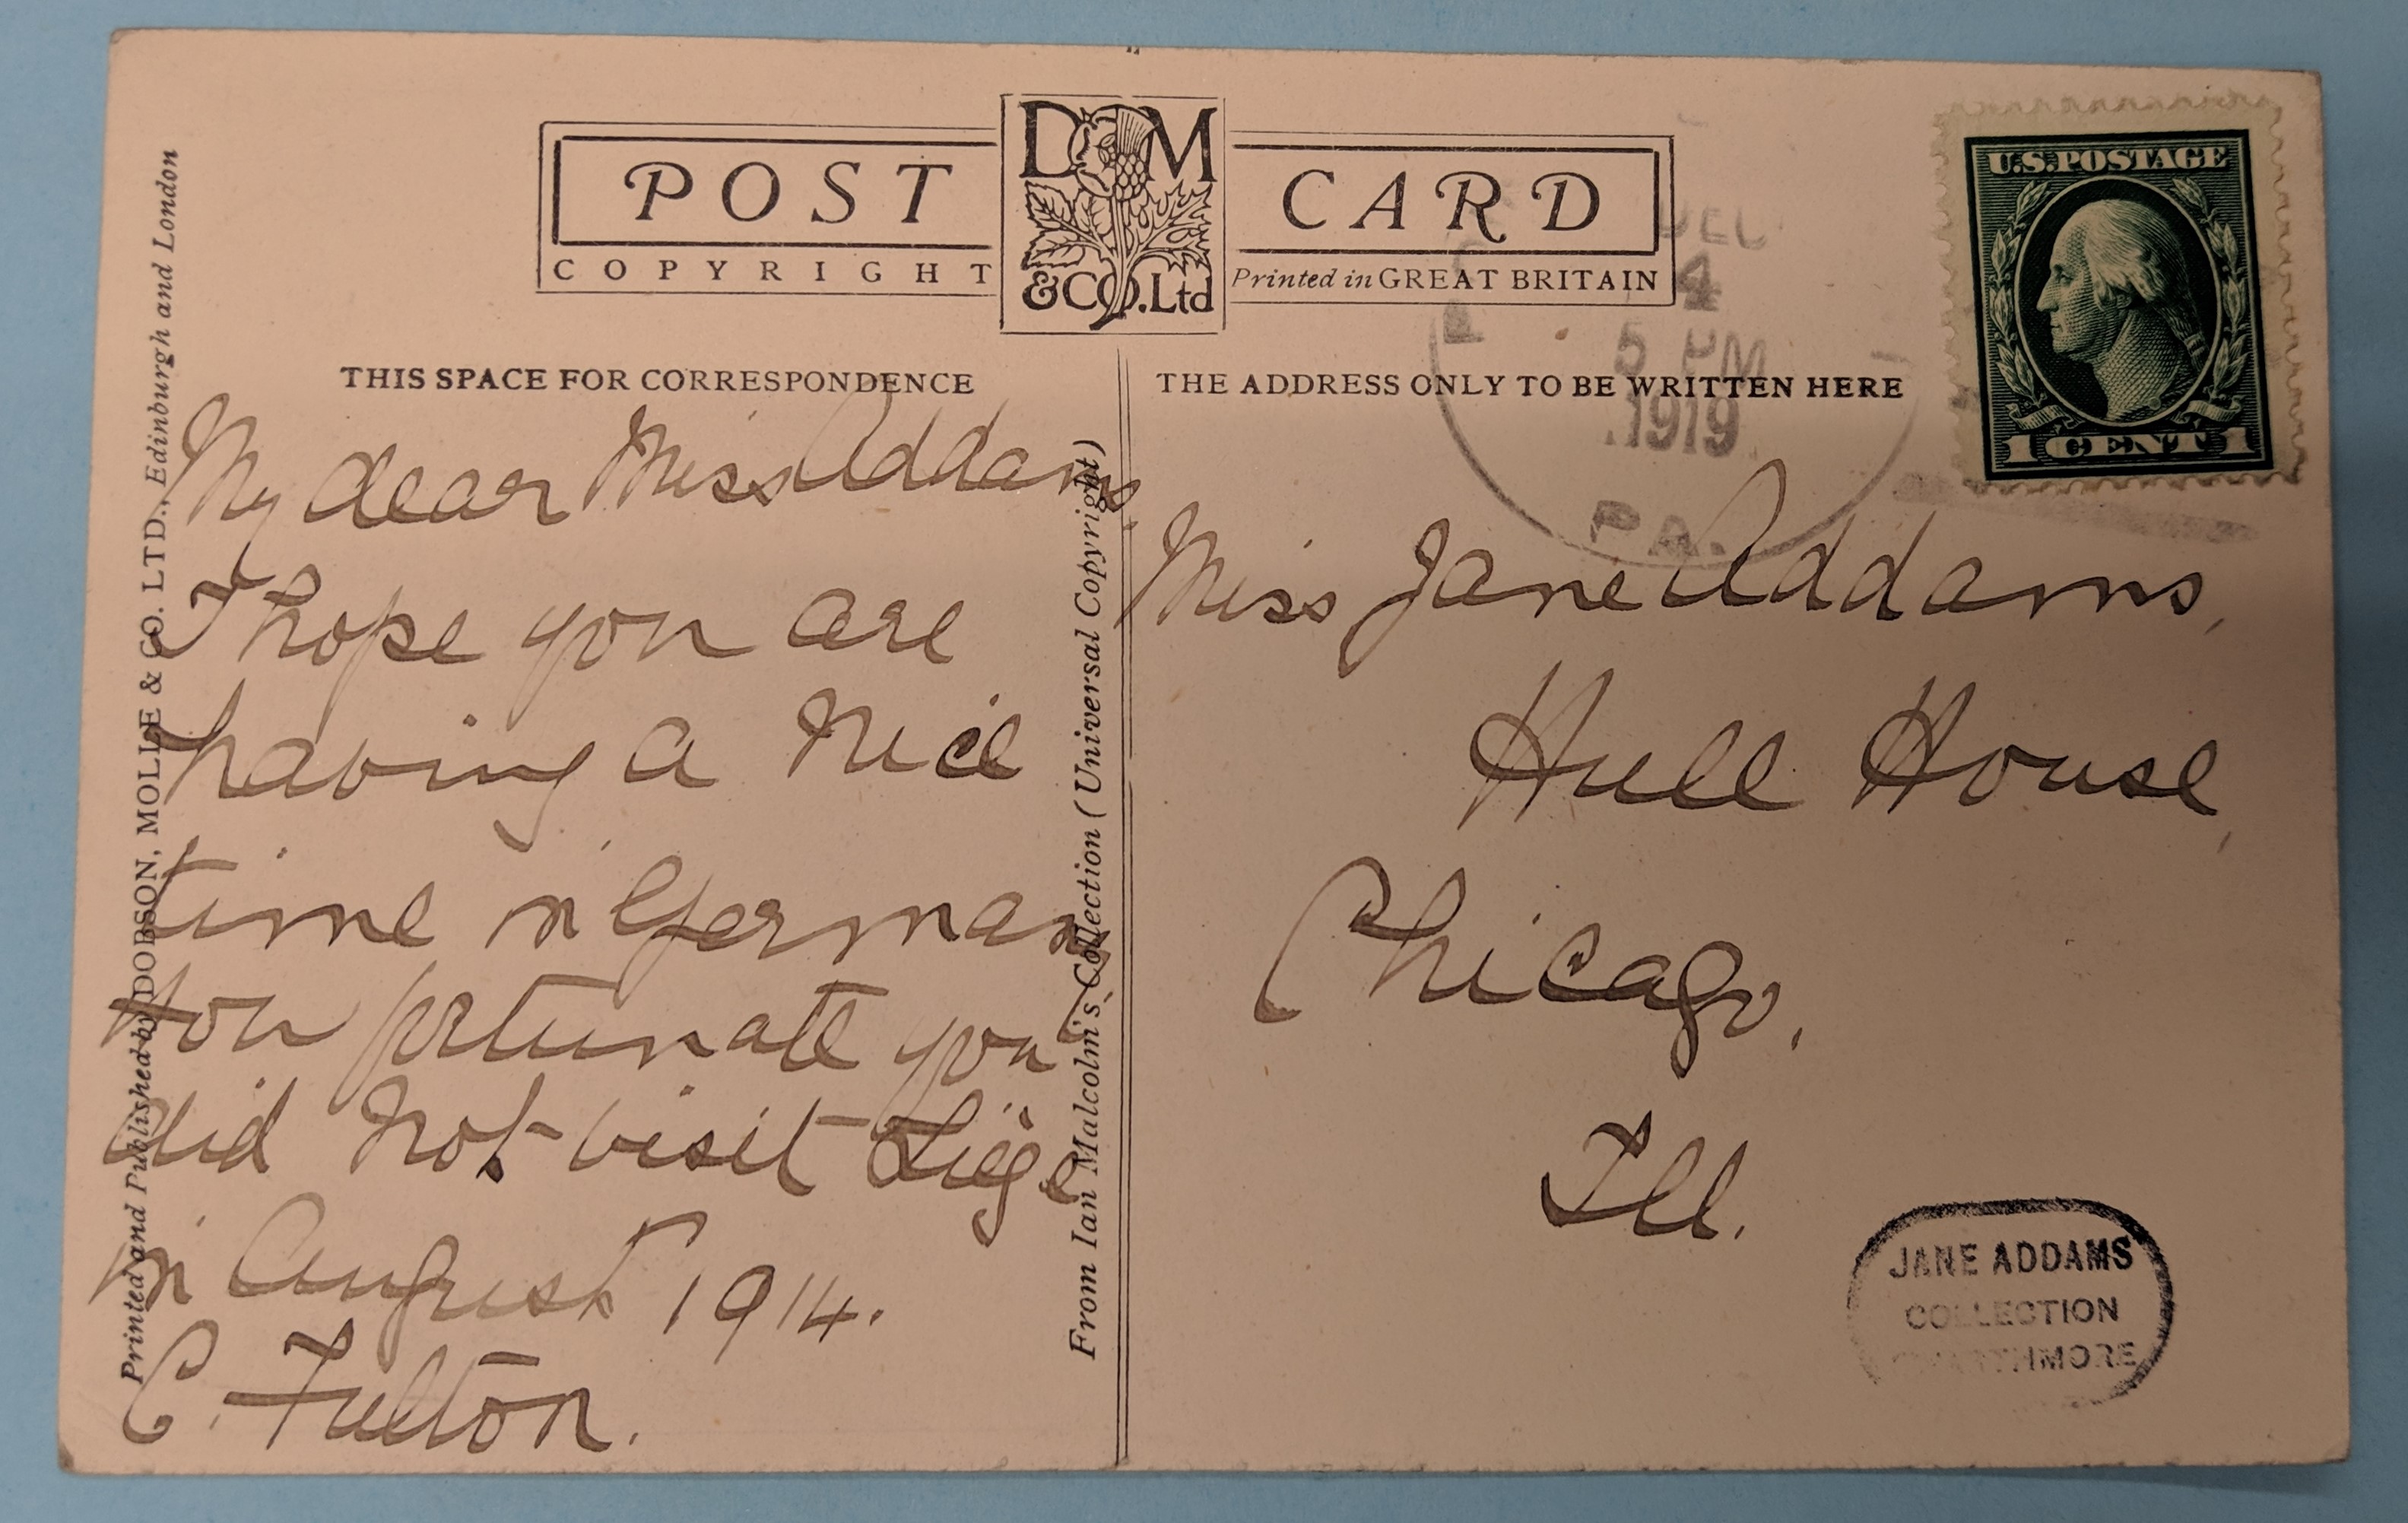 POST CARD
D M
& CO. Ltd
COPYRIGHT
Printed in GREAT BRITAIN
THIS SPACE FOR CORRESPONDENCE
THE ADDRESS ONLY TO BE WRITTEN HERE
Printed and Published by DOBSON, MOLLE & CO. LTD., Edinburgh and London
My dear Miss Addams,
I hope you are
having a nice
time in Germany.
How fortunate you
did not visit Liége
in August 1914.
C. Fulton.
From Ian Malcolm's Collection (Universal Copyright)
U.S. POSTAGE
1 CENT 1
DEC
4
5 PM
1919
PA.
Miss Jane Addams,
Hull House,
Chicago,
Ill.
JANE ADDAMS
COLLECTION
SWARTHMORE